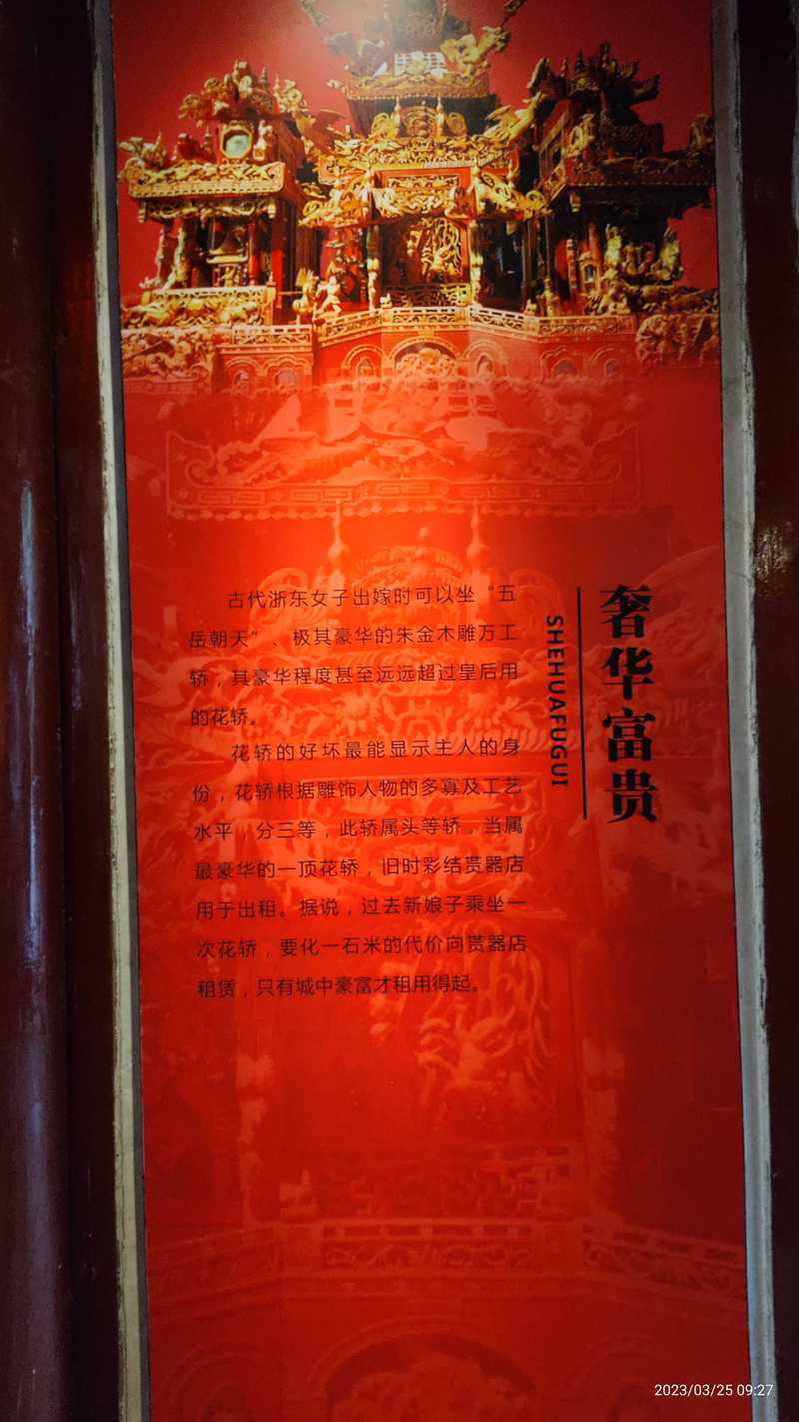 奢华富贵
SHEHUAFUGUI
古代浙东女子出嫁时可以坐“五
岳朝天”、极其豪华的朱金木雕万工
轿，其豪华程度甚至远远超过皇后用
的花轿。
花轿的好坏最能显示主人的身
份，花轿根据雕饰人物的多寡及工艺
水平，分三等，此轿属头等轿，当属
最豪华的一顶花轿，旧时彩结贳器店
用于出租。据说，过去新娘子乘坐一
次花轿，要化一石米的代价向贳器店
租赁，只有城中豪富才租用得起。
2023/03/25 09:27